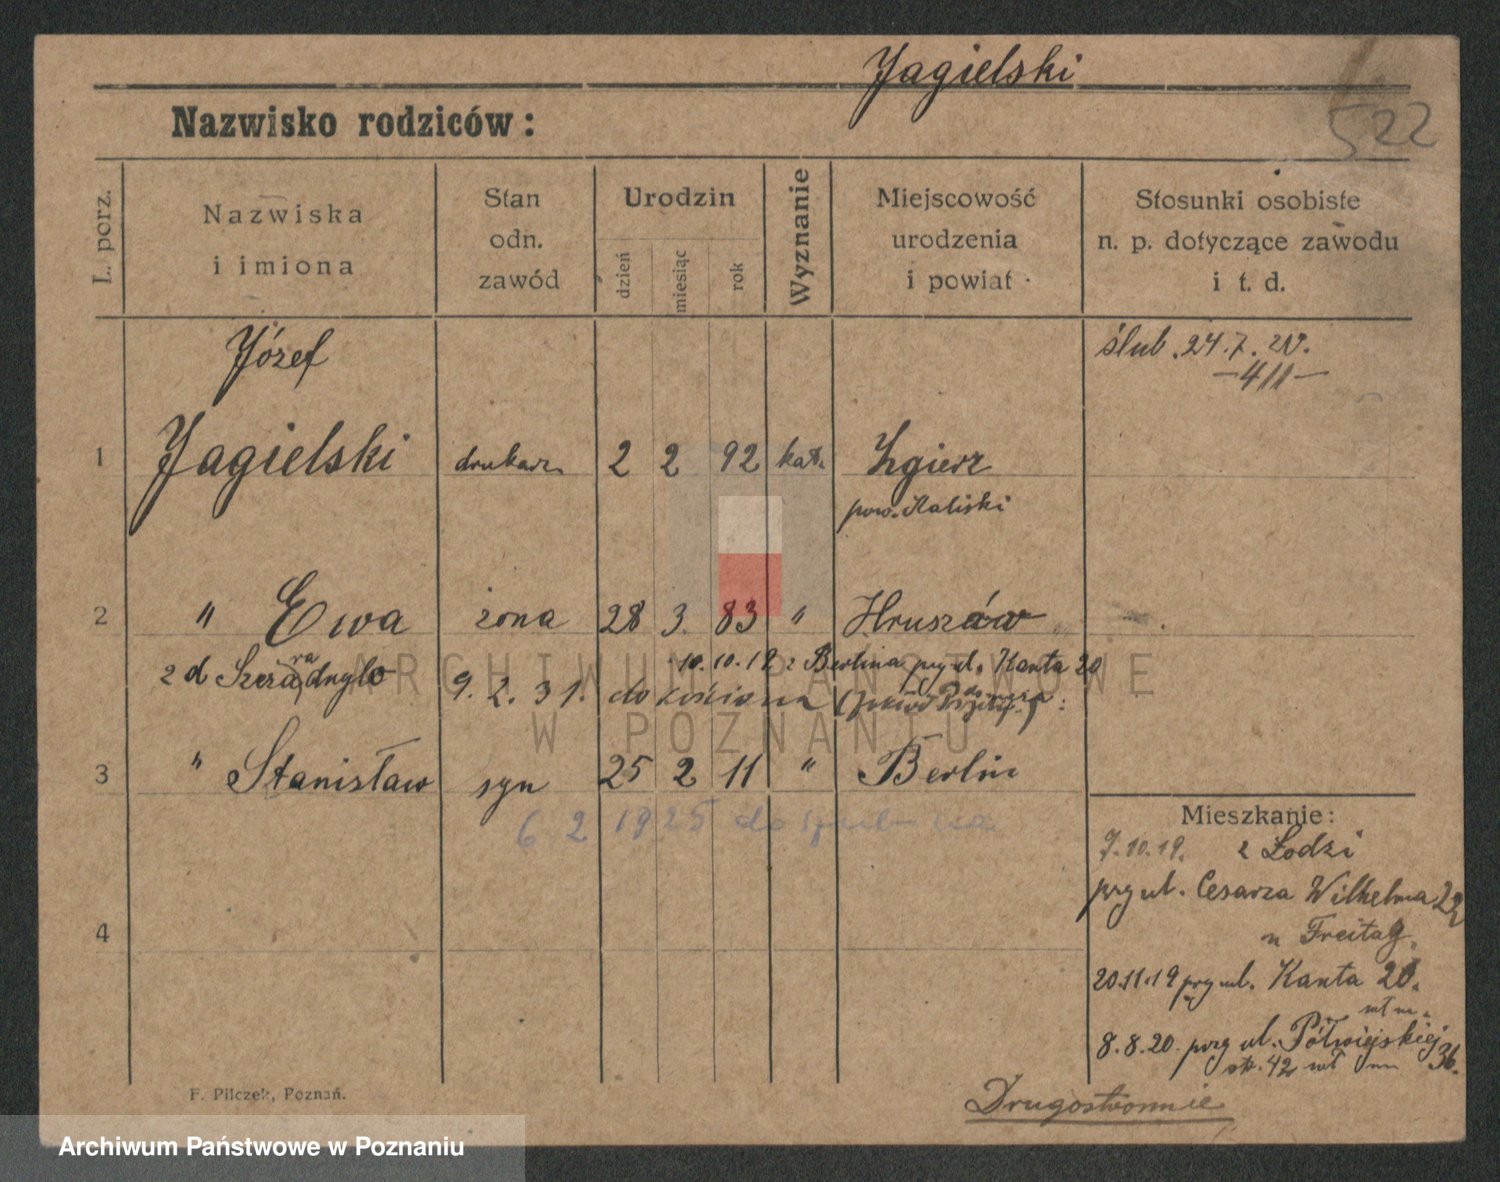 Jagielski
522
Nazwisko rodziców:
L. porz.
Nazwiska
i imiona
Stan
odn.
zawód
Urodzin
dzień
miesiąc
rok
Wyznanie
Miejscowość
urodzenia
i powiat
Stosunki osobiste
n. p. dotyczące zawodu
i t. d.
Józef
ślub. 24.7.20.
-411-
1 Jagielski drukarz 2 2 92 kat. Zgierz
pow. Kaliski
2 " Ewa żona 28 3. 83 " Hruszów
2 d 10.10.19 z Berlina prz ul. Kanta 20
9. 2. 31. do
3 " Stanisław syn 25 2 11 " Berlin
6 2 1925 do
Mieszkanie:
7.10.19. z Łodzi
przy ul. Cesarza Wilhelma 22
u Freitag.
4
20.11.19 przy ul. Kanta 20.
8.8.20. przy ul. Półwiejskiej 36.
str. 42
F. Pilczek, Poznań.
Drugostronnie
ARCHIWUM PAŃSTWOWE
W POZNANIU
Archiwum Państwowe w Poznaniu